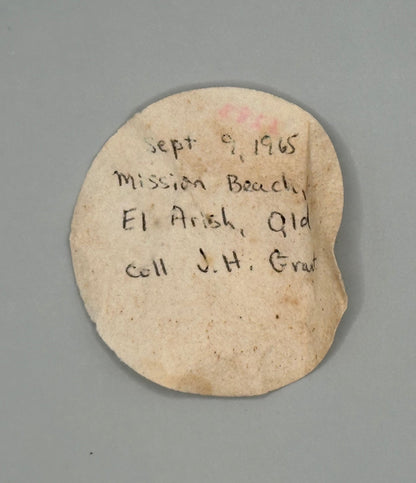 Sept 9, 1965
Mission Beach,
El Arish, Qld
coll J.H.